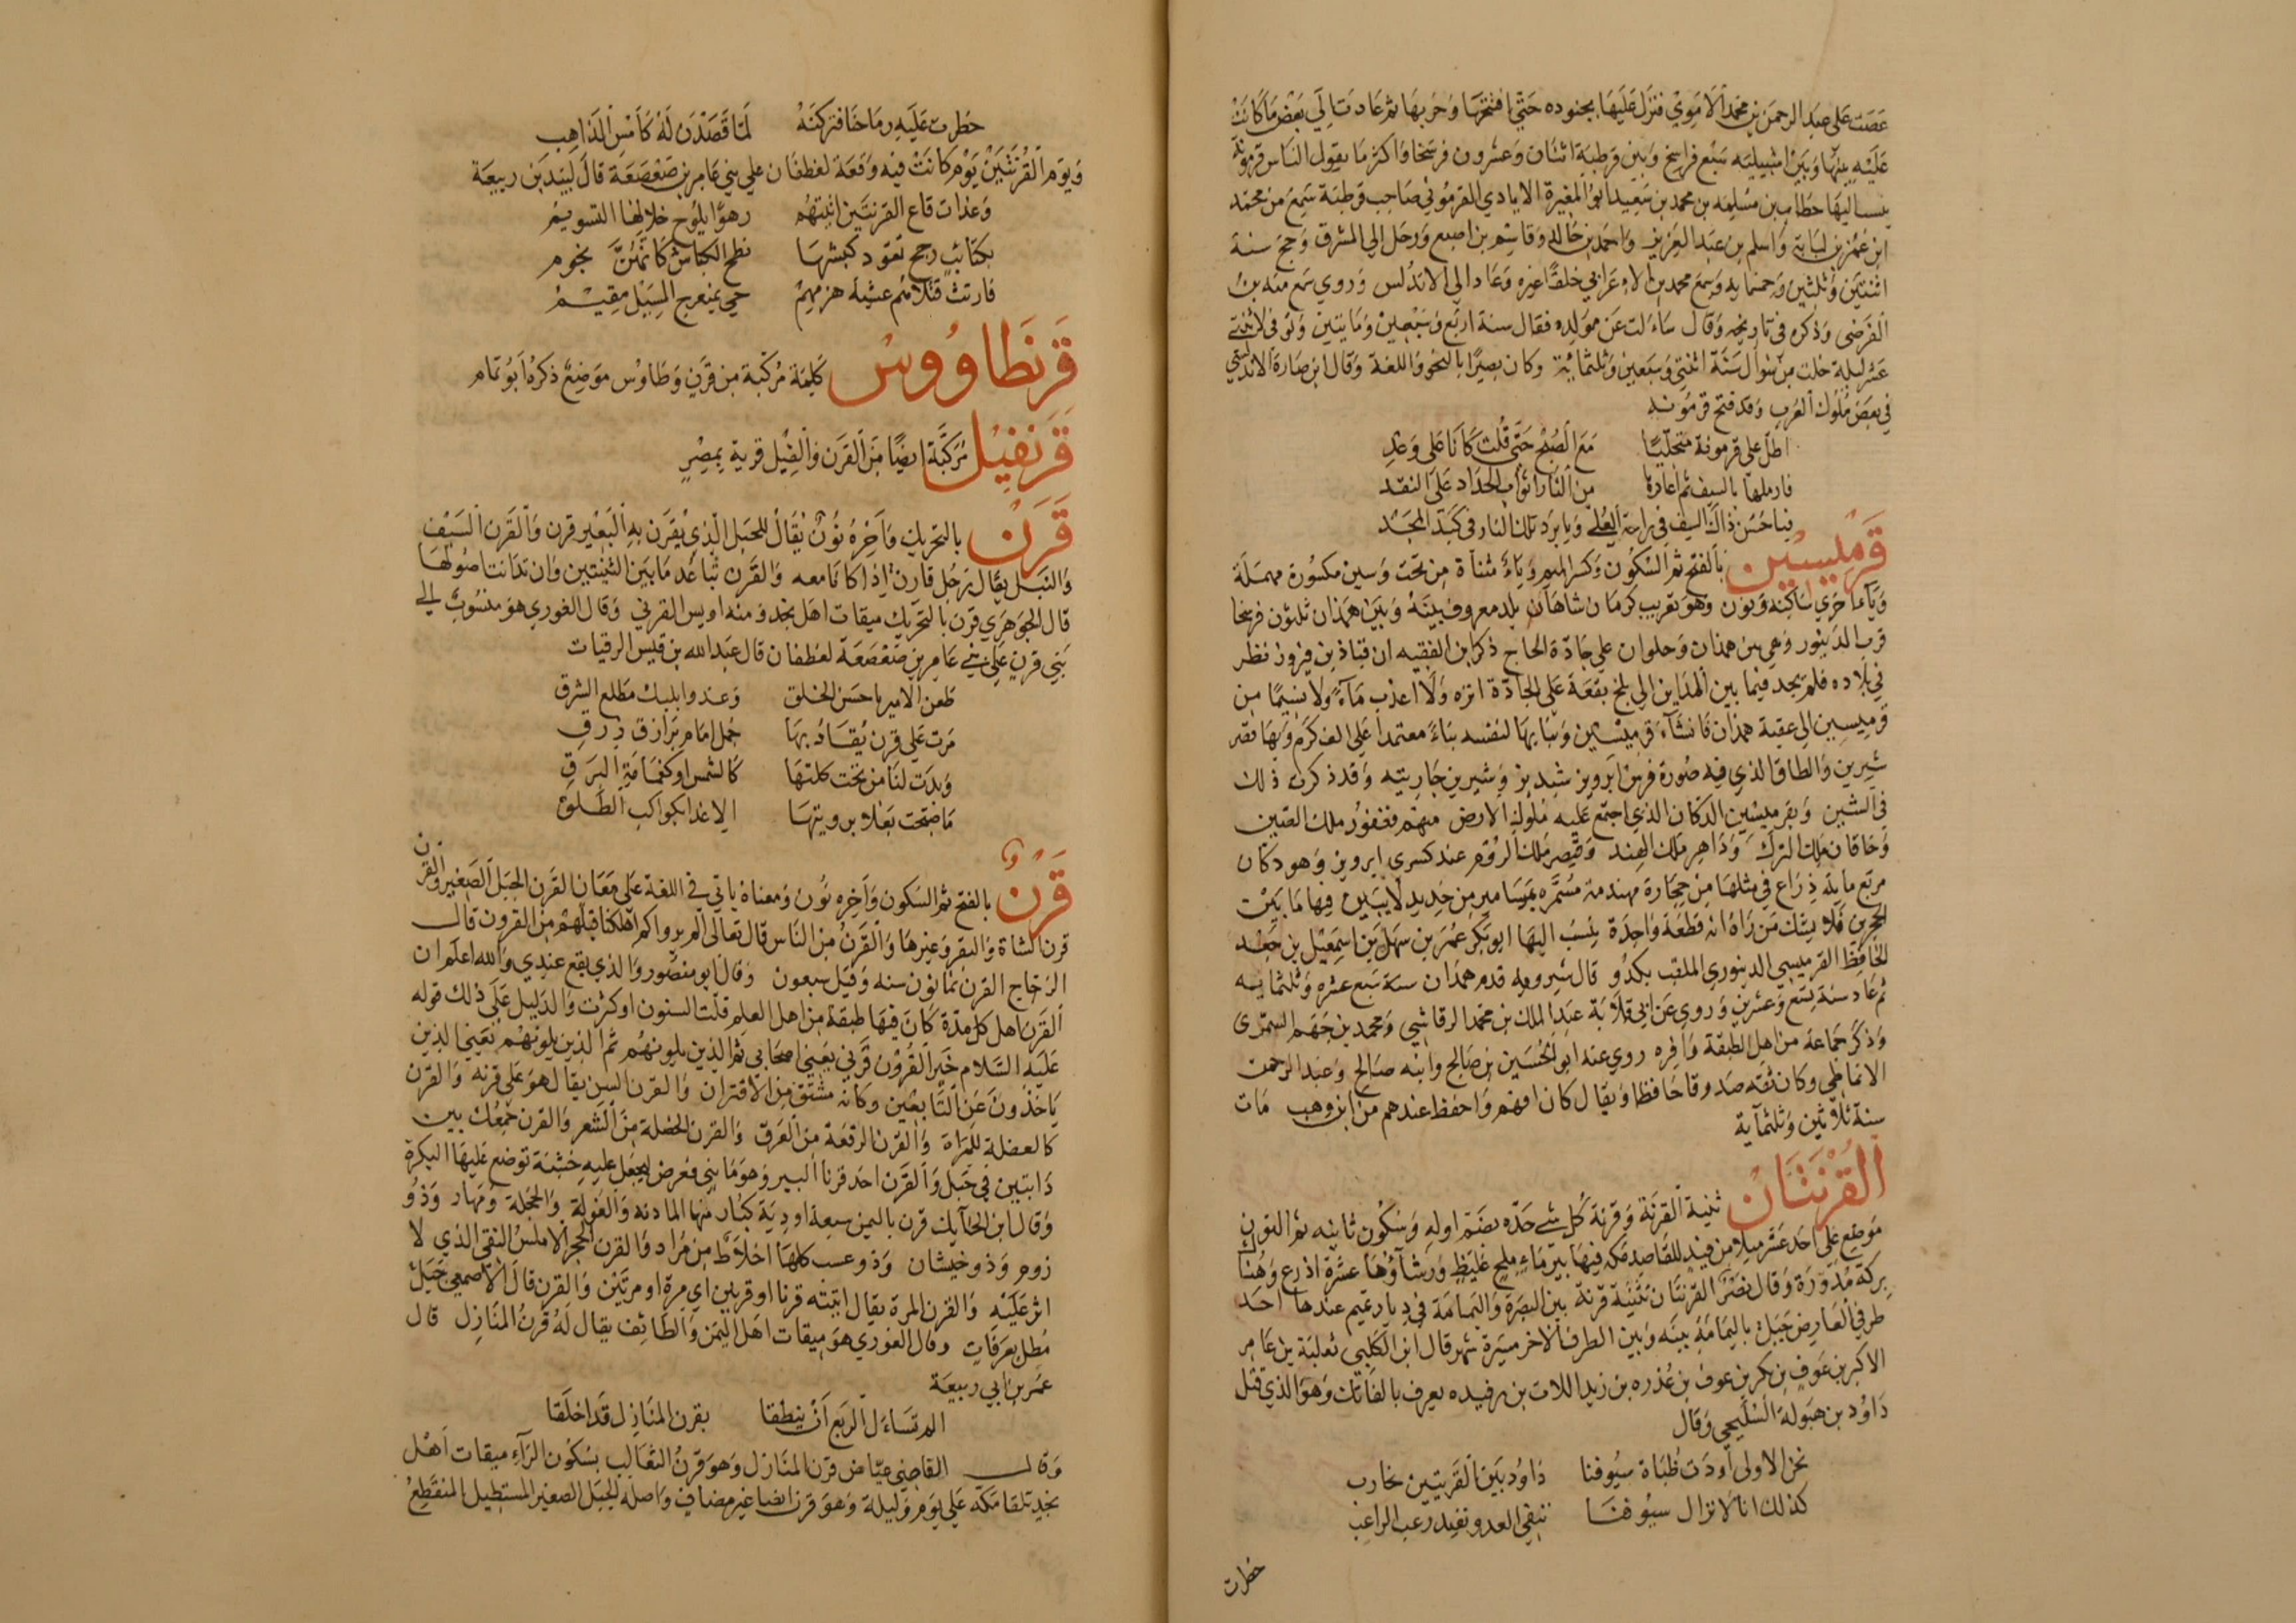 عَصَت عَلى عبد الرحمَن بن محمد الاموِيْ فنزل عَليهَا بجنوده حَتّى افتتحهَا وَخربهَا ثم عَادت الي بَعْض مَا كانَت
عَلَيْه وبينهَا وَبَيْن اشبيليه سَبْع فراسخ وَبَين قرطبة اثنان وَعشرون فرسخا وَاكثر مَا يقول النَاس قرمونه
ينسب اليهَا خطاب بن مسْلمه بن محمد بن سَعِيد ابو المغيرة الايادي القرموني صَاحِب قرطبة سَمع من محمّد
ابن عُمَر بن لبَابَة وَاسلم بن عَبد العَزيز وَاحمَد بن خَالد وَقاسم بن اصبع وَرحَل الي المشرق وَحج سنة
اثنتين وَثلثين وَ وَسمعَ محمد بن الاعرابي خلقًا غيره وَعَاد الي الاندلس وَروي سَمع منه بن
الفَرضى وَذكره في تاريخه وَقال سَاءَلت عَن مَولده فقال سنة اربع وَسَبْعِينَ وَمَايَتين وَتوفى لاثنتي
عَشر ليلة خلت من شوال سَنَة اثنتي وَسبعَين وَثلثمائة وكان بصيرًا بالنحو وَاللغة وَقال ابن صَارة الاندلسي
في بعَض مُلوك العَرب وَقد فتح قرمُونه
اطلّ عَلى قرمونة متجليًا مَعَ الصُبْح حَتّى قُلت كَانَا عَلى وَعدِ
فارملهَا بالسيف ثم اعَادهَا مِن النَار اثوَاب الحدَاد عَلَى النقد
فيا حُسْن ذاك السَيف في رَاحَة العُلى وَيا برَد تلك النار في كَبد المَجْد
قَرْمِيْسِيْن بالفَتح ثم السُكون وَكسر الميم وَيَاءْ مثناة من تحت وَسين مكسُورة مهمَلَة
وَيَاء اخري سَاكنه وَنون وَهوَ تعريب كرمَان شاهَان بلد معروف بينَهُ وَبَيْن همَذان ثلثون فرسخا
قرب الدينور وَهي بين همذان وَحلوان علي جَادّة الحَاج ذكر ابن الفقيه ان قبَاذ بن فيروز نظر
في بلاده فلم يجد فيما بين المدَاين الي بلخ بقعَة عَلى الجَادّة انزه وَلَا اعذب مَاءً وَلا نسيمًا من
قرميسين الى عقبة همذان فَانشَاءَ قرميسْين وَبنَا بهَا لنفسه بناءً معتمدا عَلى الف كَرم وَبهَا قصر
شيرين وَالطاق الذي فيه صُورة فرس ابرويز شبديز وَشيرين جَاريته وَقد ذكرت ذلك
في الشين وَبقرميسْين الدكان الذي اجتمع عَليه مُلوك الارض منهم فغفور ملك الصين
وَخاقان ملك الترك وَذاهر ملك الهند وَقيصر ملك الروم عند كسري ابرويز وَهو دكان
مربّع ماية ذرَاع في مثلهَا مِن حِجَارة مهندمة مُسَمَّره بمسَامير من حَديد لا يبين فيها مَا بَيْن
الحجرين فلا يشك مَن رَاهُ انه قطعَة وَاحِدَة ينسب اليهَا ابو بَكر عُمَر بن سهل بن اسمعيل بن جَعْد
الحَافِظ القرميسي الدينوري الملقب بكدُو قال شيرويه قدم همذان سنة سَبع عشره وَثلثمايه
ثم عَاد سَنة تِسع وَعشرين وَروي عَن ابي قلابَة عَبد الملك بن محمد الرقاشي وَمحمد بن جَهم السمري
وَذكر جَماعة من اهل الطبقة وَافره روي عنه ابو الحُسَين بن صَالح وابنه صَالح وَعبد الرحمن
الانماطي وكان ثقه صَدوقا حَافظا وَيقال كان افهم وَاحفظ عندهم من ابن وَهب مَات
سنة ثلاثين وَثلثماية
القُرْنَتَانُ تثنية القُرنَة وَقرنة كُل شي حَدّه بضَم اوله وَسُكون ثانيه ثم النون
مَوْضِع عَلى احَد عَشر ميلا من فيد للقاصِد مَكه فيهَا بير مَاءٍ مِلح غَليظٍ وَرشَآوُهَا عشَرَة اذرع وَهُناك
بركة مُدوّرَة وَقال نصْر القرنتَان تثنيَة قرنة بين البصَرة وَاليَمامَة في دِيار تميم عندهَا احَد
طرفي العَارض جَبَل باليَمامَة بينَه وَبين الطرف الاخر مسيرَة شهر قال ابن الكلبي ثعلبَة بن عَامِر
الاكبر بن عَوف بن بكر بن عوف بن عُذره بن زيد اللات بن رفيده يعرف بالفاتك وَهوَ الذي قتل
دَاوُد بن هبَولة السَليحي وَقال
نحن الاولى اَودَت ظبَاة سيُوفنا دَاوُد بَين القَريتيين بحَارب
كذلك انا لا تزال سيُوفنَا تنفي العدو وتفيد رعب الراعب
خطرت
خطرت عَليْه رماحنا فتركنَهْ لمّا قَصَدْن لَهُ كاَمْس الذَاهِب
وَيَوم القُرنَتَيَنْ يَوْم كانت فيه وَقعَة لغطفَان علي بني عَامِر بن صَعْصَعَة قالَ لَبِيْد بَن ربيعَة
وَغدَات قاع القرنتَين اتيْتهُم رهوًا يلوُح خلالهَا التسويمُ
بكتائبٍ رجح تعَوّد كبشهَا نطح الكبَاش كانهنَّ نجوم
فارتثّ قتلاهم عَشيّة هزمهِمْ حَي بمنعرج المَسيْل مقيْم
قَرَنطَاوُوسْ كَلِمَة مُركّبة مِن قَرنٍ وَطَاوُس مَوضِعُ ذكرهُ اَبوُ تمام
قَرَنفِيْل مُرَكّبَة ايضًا مِنَ القَرَن وَالفِيْل قرية بِمصِر
قَرَن بالتحريك وَآخِرُهُ نُونٌ يُقال للحَبل الذي يُقرَن بهِ البَعْير قرن وَالقَرَن السَيْف
وَالنَبل يقال رَجل قارن اذا كانا مَعه وَالقَرَن تبَاعُد مَا بَين الثنيتين وَان تدانت اصُولهَا
قال الجَوهَري قرن بالتحريك ميقات اهل نجد وَمنه اويس القرني وَقال الغوري هوَ منسُوبٌ الي
بَني قرنٍ عَلى بني عَامِر بن صَعْصَعَة لغطفان قال عَبد الله بن قيس الرقيات
ظعن الامير باحسَن الخلق وَغدوا بلبك مَطلع الشرق
مَرت عَلى قرن يُقَادُ بهَا جُمل امَام بَرَازقٍ زرقٍ
وَبدَت لنا مِن تحت كلتهَا كالشمسِ اوْ كغمَامَة البَرَقِ
مَا صَبّحت بَعْلا برويتهَا الا غدا بكوَاكب الطَلقِ
قَرْنٌ بالفتح ثم السَكون وَآخِره نُون وَمَعناهُ ياتي في اللغَة عَلى مَعَان القَرن الجبَل الصَغير وَالقرن
قرن الشاة وَالبقر وَغيرهَا وَالقَرن من النَاس قال تعَالى الم يروا كم اهلكنا قبلهم من القرون قال
الزجاج القرن ثمَانُون سنه وَقيْل سبعون وَقال ابو منصُور وَالذي يقع عندي وَالله اعلم ان
القَرن اهل كل مدّة كان فيهَا طبقة من اهل العلم قلّت السنون او كثرت وَالدَليْل عَلى ذلك قوله
عَليه السَلام خَير القُروْن قَرني يعَني اصحَابي ثم الذين يلونهُم ثم الذِين يلونهُم يعَني الذين
يَاخذُونَ عَن التابعين وَكانه مُشتق من الاقتران وَالقرن السِن يقال هوَ عَلى قرنه وَالقرن
كالعفلة للمَراة وَالقرن الدفعَة من العَرق وَالقرن الخصلة مِنَ الشعر وَالقرن جَمعُك بين
دَابتين في حَبل وَالقَرن احد قرنا البير وَهوَ مَا بني فعرض ليجعَل عليه خشبَة توضع عَليهَا البكرة
وَقال ابن الحايك قرن باليمن سبعة اودِيَة كبُار منهَا المادنه وَالغولة وَالجلة وَمهَار وَذوُ
زوم وَذو خيشان وَذو عسب كلهَا اخلاط من مُراد وَالقرن الحجر الاملس النقي الذي لا
اثر عَلَيْه وَالقرن المرة يقال اتيته قرنا او قرنين اي مرة او مرتين وَالقرن قال الاصمعي جَبَل
مُطل بعَرفاتٍ وَقال الغوري هوَ ميقات اهل اليَمن وَالطائِف يقال لَهُ قرن المنَازل قال
عمَر بن ابي ربيعَة
الم تسَاءَل الربعَ اَنْ ينطقا بقرن المنَازل قَد اخلَقا
وَقال القاضي عيّاض قرن المنَازل وَهوَ قَرْنُ الثعَالب بسُكون الرَآء ميقات اهْل
نجد تلقا مَكة عَلى يوَم وَليلة وَهوَ قرن ايضا غير مضافٍ وَاصله الجبَل الصغير المستطيل المنقطع